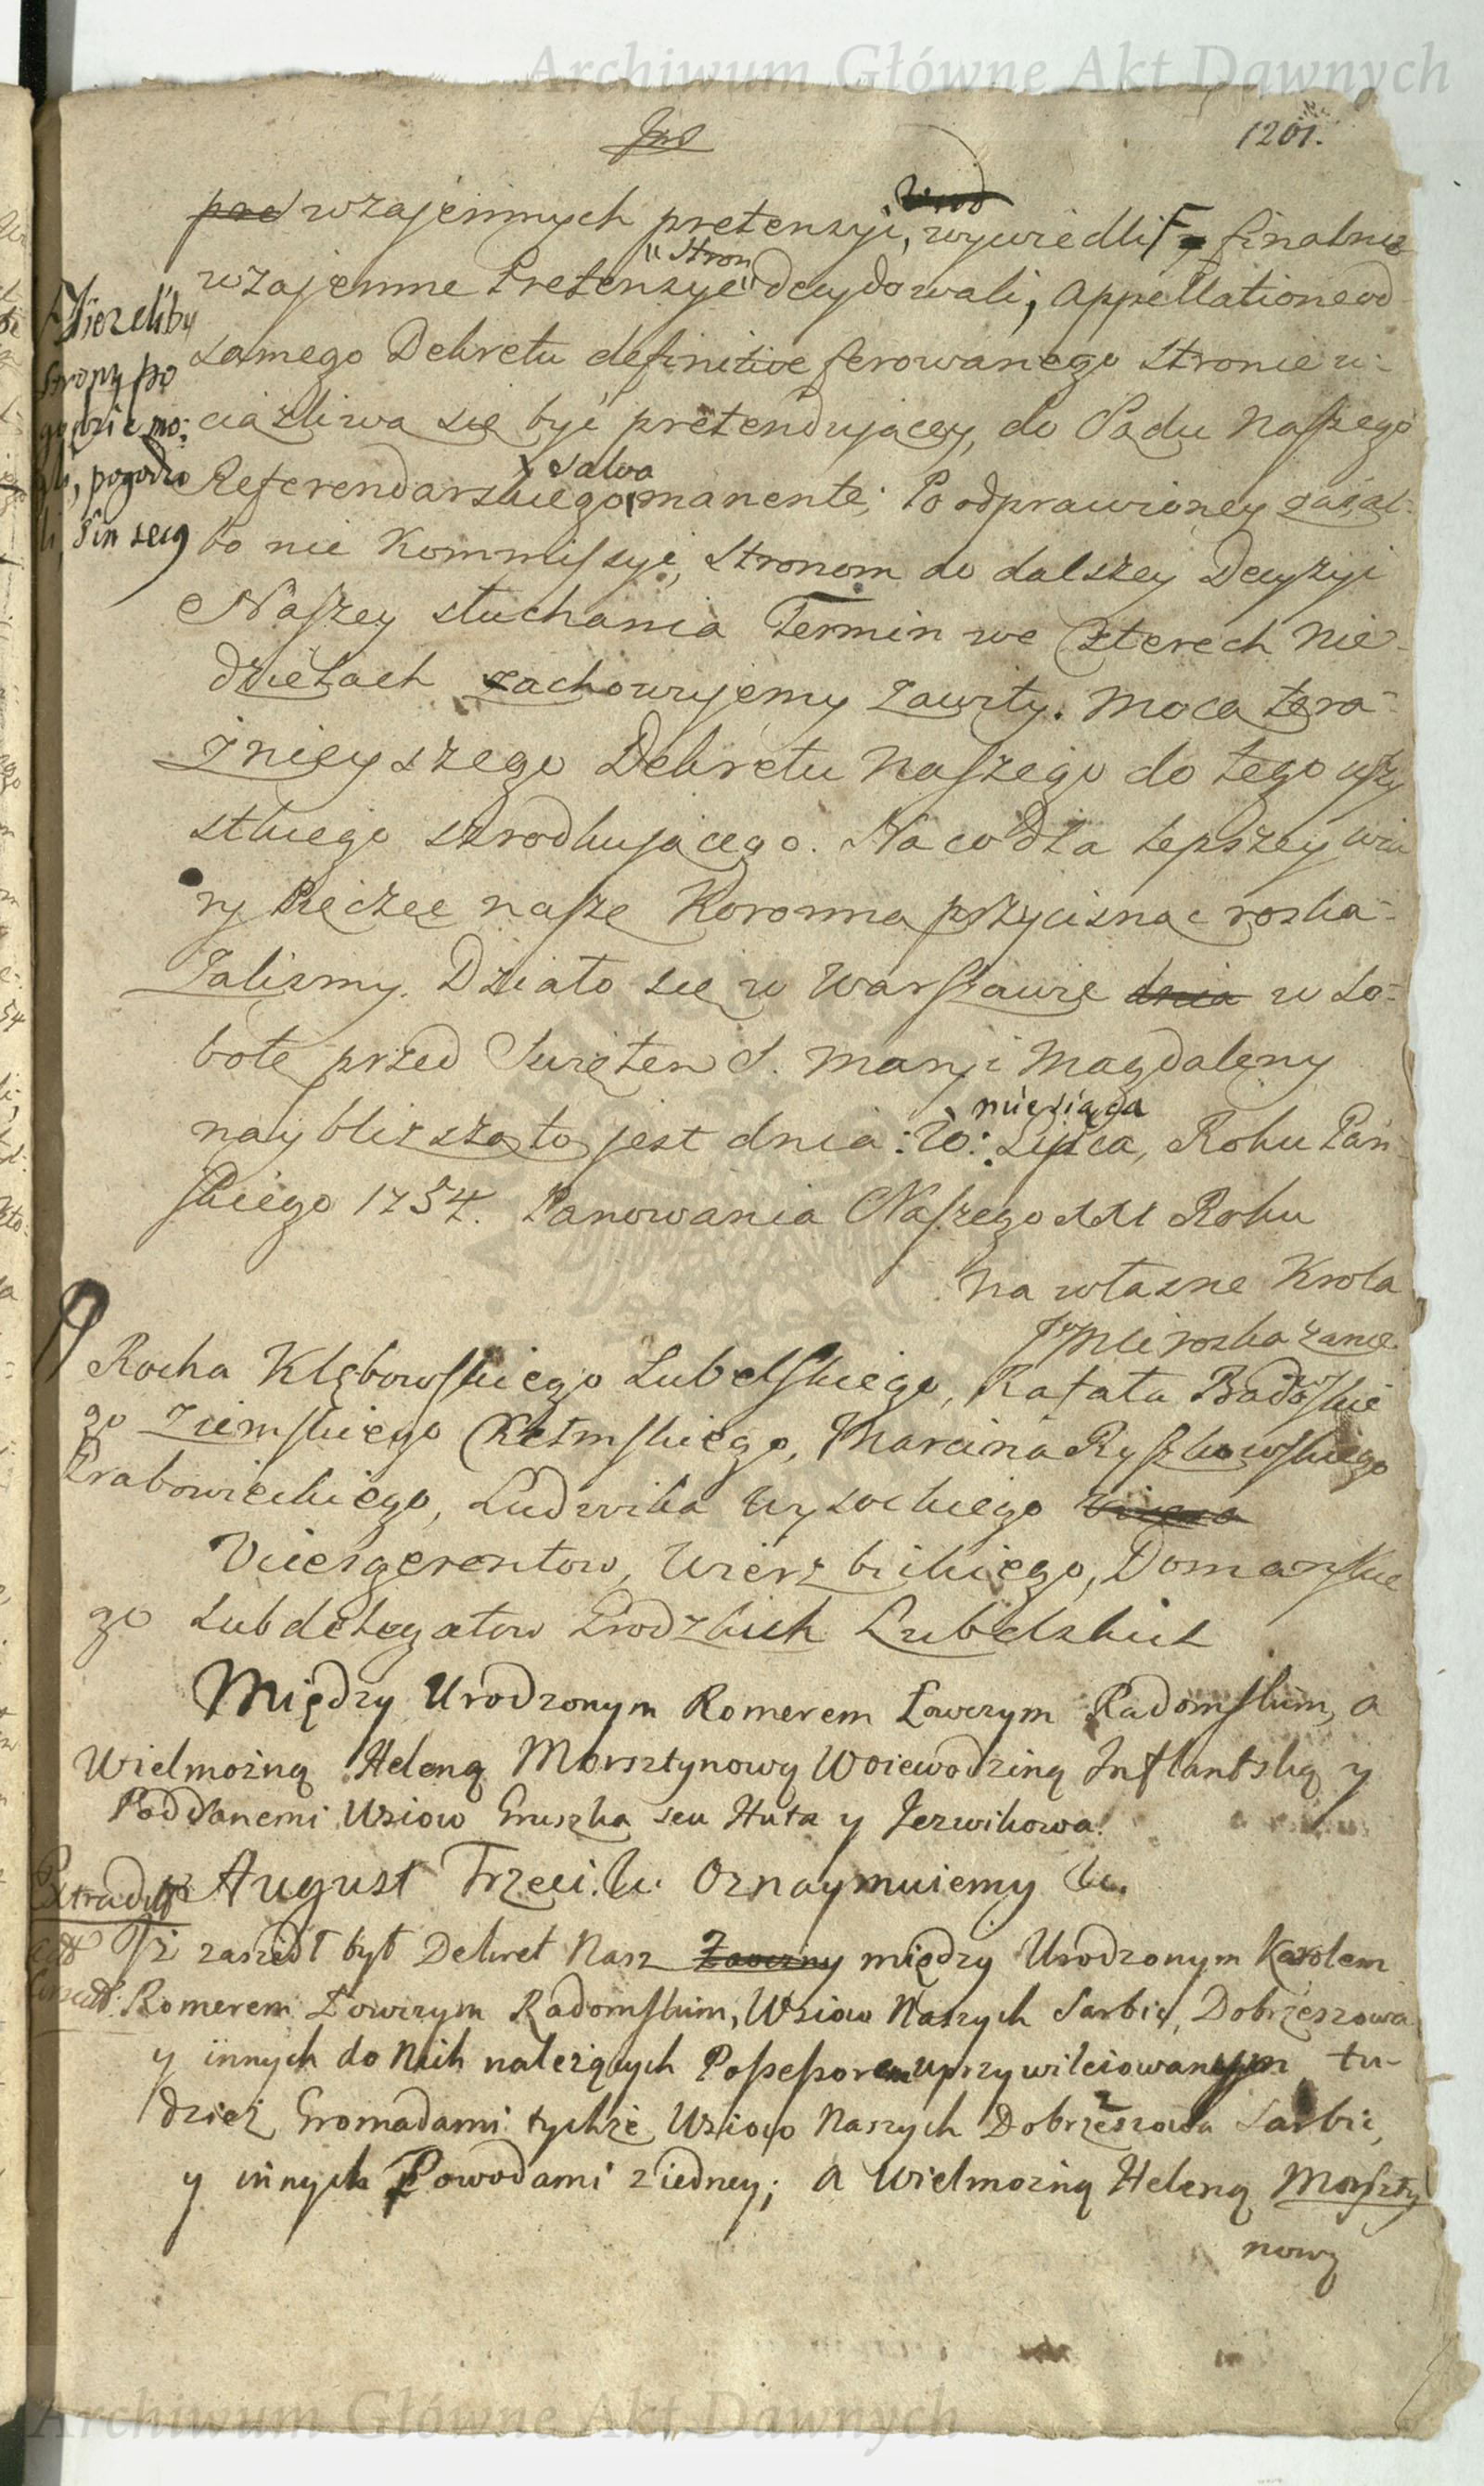 Archiwum Główne Akt Dawnych
1201.
wzajemnych pretensyi, wywiedli F finalnie
wzajemne Pretensye "Stron" decydowali, Appellatione od
samego Dekretu definitive ferowanego Stronie u-
ciążliwą się być pretendującey, do Sądu Naszego
Referendarskiego salva manente; Po odprawioney zaś al-
bo nie Kommissyi, Stronom do dalszey Decyzyi
Naszey słuchania Termin we Czterech Nie-
dzielach zachowujemy zawity. Mocą tera-
znieyszego Dekretu Naszego do tego wszy
stkiego szrodkującego. Na co dla lepszey wia
ry Pieczęć naszę Koronną przycisnąc roska-
zalismy. Działo się w Warszawie dnia w So-
botę przed Swiętem S. Maryi Magdaleny
naybliższą to jest dnia: 20: miesiąca Lipca, Roku Pań-
skiego 1754. Panowania Naszego XXI Roku
na własne Krola
Jmci roskazanie
F Jiezeliby
Strony po
godzic mo-
gli, pogodzi
li Sin secq
Rocha Klębowskiego Lubelskiego, Rafała Badowskie
go Ziemskiego Chełmskiego, Marcina Ryszkowskiego
Grabowieckiego, Ludwika Wysockiego
Vicesgerentow, Wierzbickiego, Domanskie
go Subdelegatow Grodzkich Lubelskich
Między Urodzonym Romerem Łowczym Radomskim, a
Wielmożną Heleną Morsztynową Woiewodziną Inflantską y
Poddanemi Wsiow Gruszka seu Huta y Jezwikowa.
Extraditū August Trzeci. &c. Oznaymuiemy &c.
Jż zaszedł był Dekret Nasz Zaoczny między Urodzonym Karolem
Romerem Łowczym Radomskim, Wsiow Naszych Sarbic, Dobrzeszowa
y innych do Nich należących Possessorem uprzywileiowanym tu-
dzież Gromadami tychże Wsiow Naszych Dobrzeszowa Sarbic,
y innych Powodami z iedney; a Wielmożną Heleną Morszty
nową
Archiwum Główne Akt Dawnych